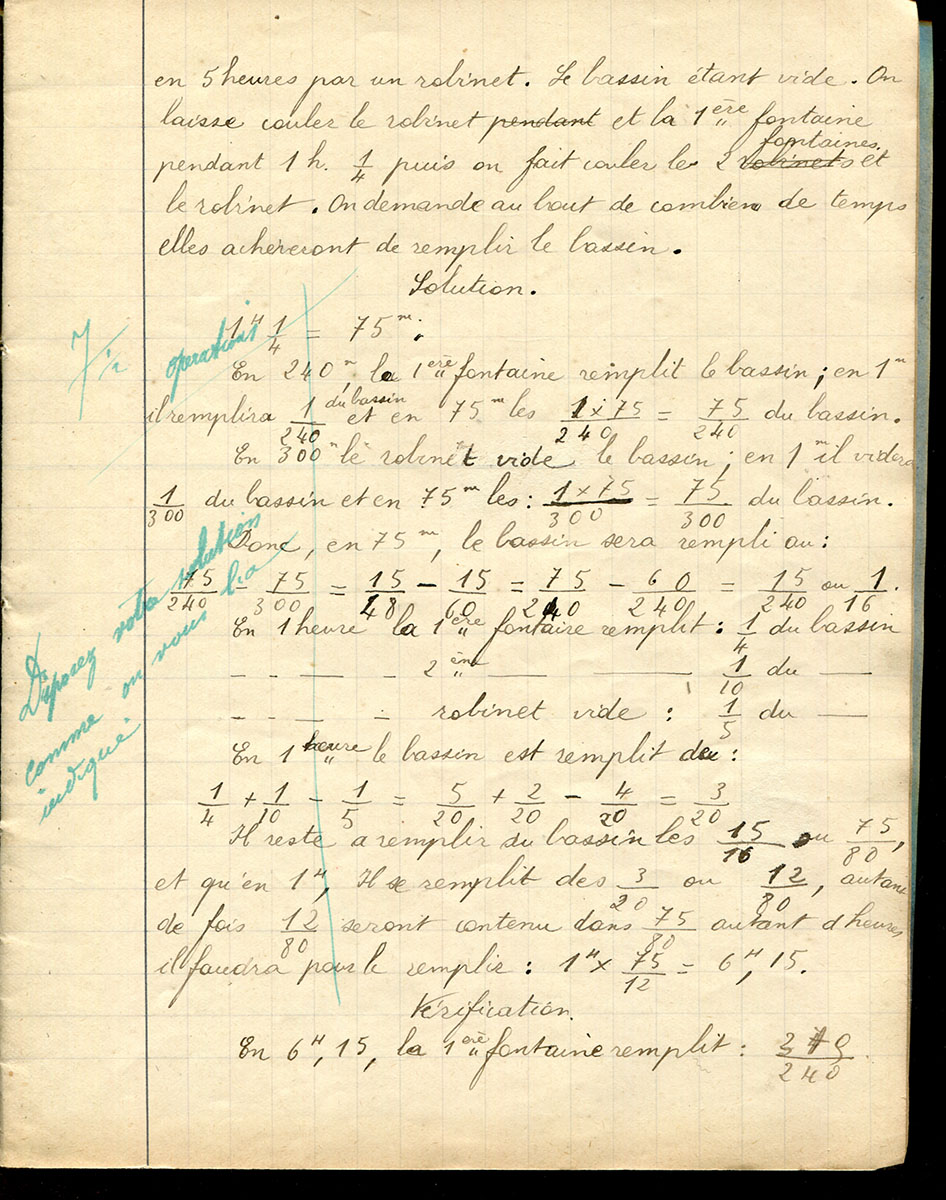 en 5 heures par un robinet. Le bassin étant vide. On
laisse couler le robinet pendant et la 1ère fontaine
fontaines.
pendant 1 h. 1/4 puis on fait couler le 2 robinets et
le robinet. On demande au bout de combien de temps
elles achèreront de remplir le bassin.
Solution.
7 1/2
operations
1H 1/4 = 75m.
En 240m, la 1ère fontaine remplit le bassin ; en 1m
il remplira 1/240 du bassin et en 75m les 1×75/240 = 75/240 du bassin.
En 300m le robinet vide le bassin ; en 1m il videra
1/300 du bassin et en 75m les : 1×75/300 = 75/300 du bassin.
Donc, en 75m, le bassin sera rempli au :
75/240 - 75/300 = 15/48 - 15/60 = 75/240 - 60/240 = 15/240 ou 1/16.
En 1 heure la 1ère fontaire remplit : 1/4 du bassin
- - — - 2ème — — 1/10 du —
- - — - robinet vide : 1/5 du —
En 1 heure le bassin est remplit de :
1/4 + 1/10 - 1/5 = 5/20 + 2/20 - 4/20 = 3/20
Il reste a remplir du bassin les 15/16 ou 75/80,
et qu'en 1H, Il se remplit des 3/20 ou 12/80, autant
de fois 12/80 seront contenu dans 75/80 autant d'heures
il faudra pour le remplir : 1H × 75/12 = 6H,15.
Vérification.
En 6H,15, la 1ère fontaine remplit : /240
Disposez votre solution
comme on vous l'a
indiqué